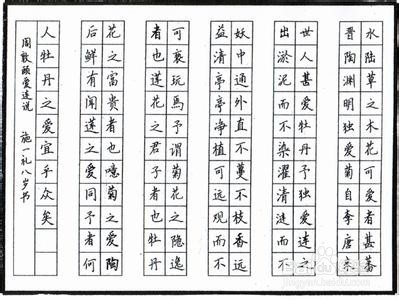 水陆草之木花可爱者甚蕃
晋陶渊明独爱菊自李唐来
世人甚爱牡丹予独爱莲之
出淤泥而不染濯清涟而不
妖中通外直不蔓不枝香远
益清亭亭净植可远观而不
可亵玩焉予谓菊花之隐逸
者也莲花之君子者也牡丹
花之富贵者也噫菊之爱陶
后鲜有闻莲之爱同予者何
人牡丹之爱宜乎众矣
周敦颐爱莲说 施一礼八岁书